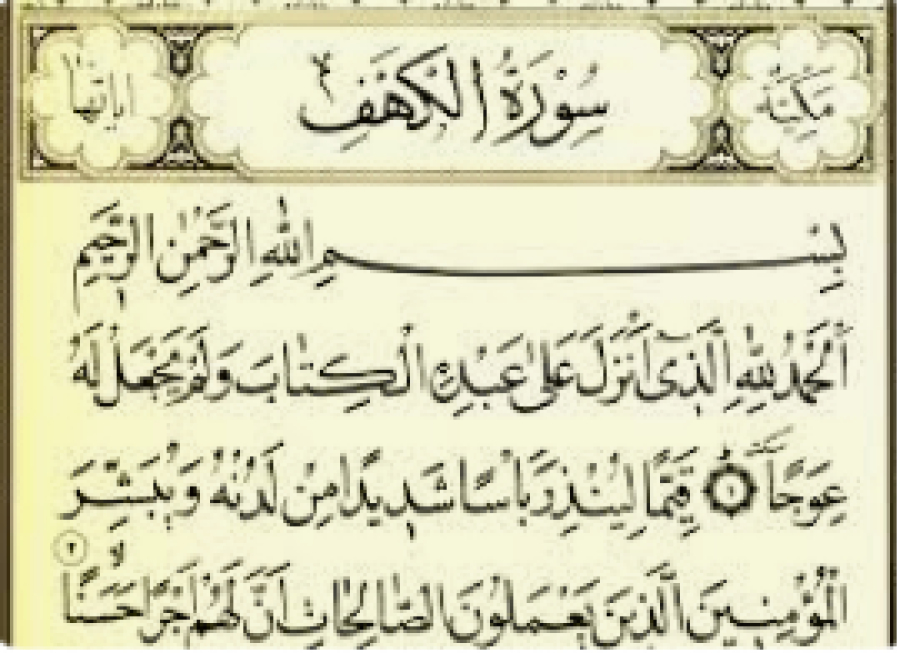 مَكِّيَّة سُورَةُ الْكَهْفِ اٰيَاتُهَا
بِسْمِ اللّٰهِ الرَّحْمٰنِ الرَّحِيمِ
اَلْحَمْدُ لِلّٰهِ الَّذٖٓى اَنْزَلَ عَلٰى عَبْدِهِ الْكِتَابَ وَلَمْ يَجْعَلْ لَهُ
عِوَجًا ١ قَيِّمًا لِيُنْذِرَ بَاْسًا شَدٖيدًا مِنْ لَدُنْهُ وَيُبَشِّرَ
الْمُؤْمِنٖينَ الَّذٖينَ يَعْمَلُونَ الصَّالِحَاتِ اَنَّ لَهُمْ اَجْرًا حَسَنًا ٢